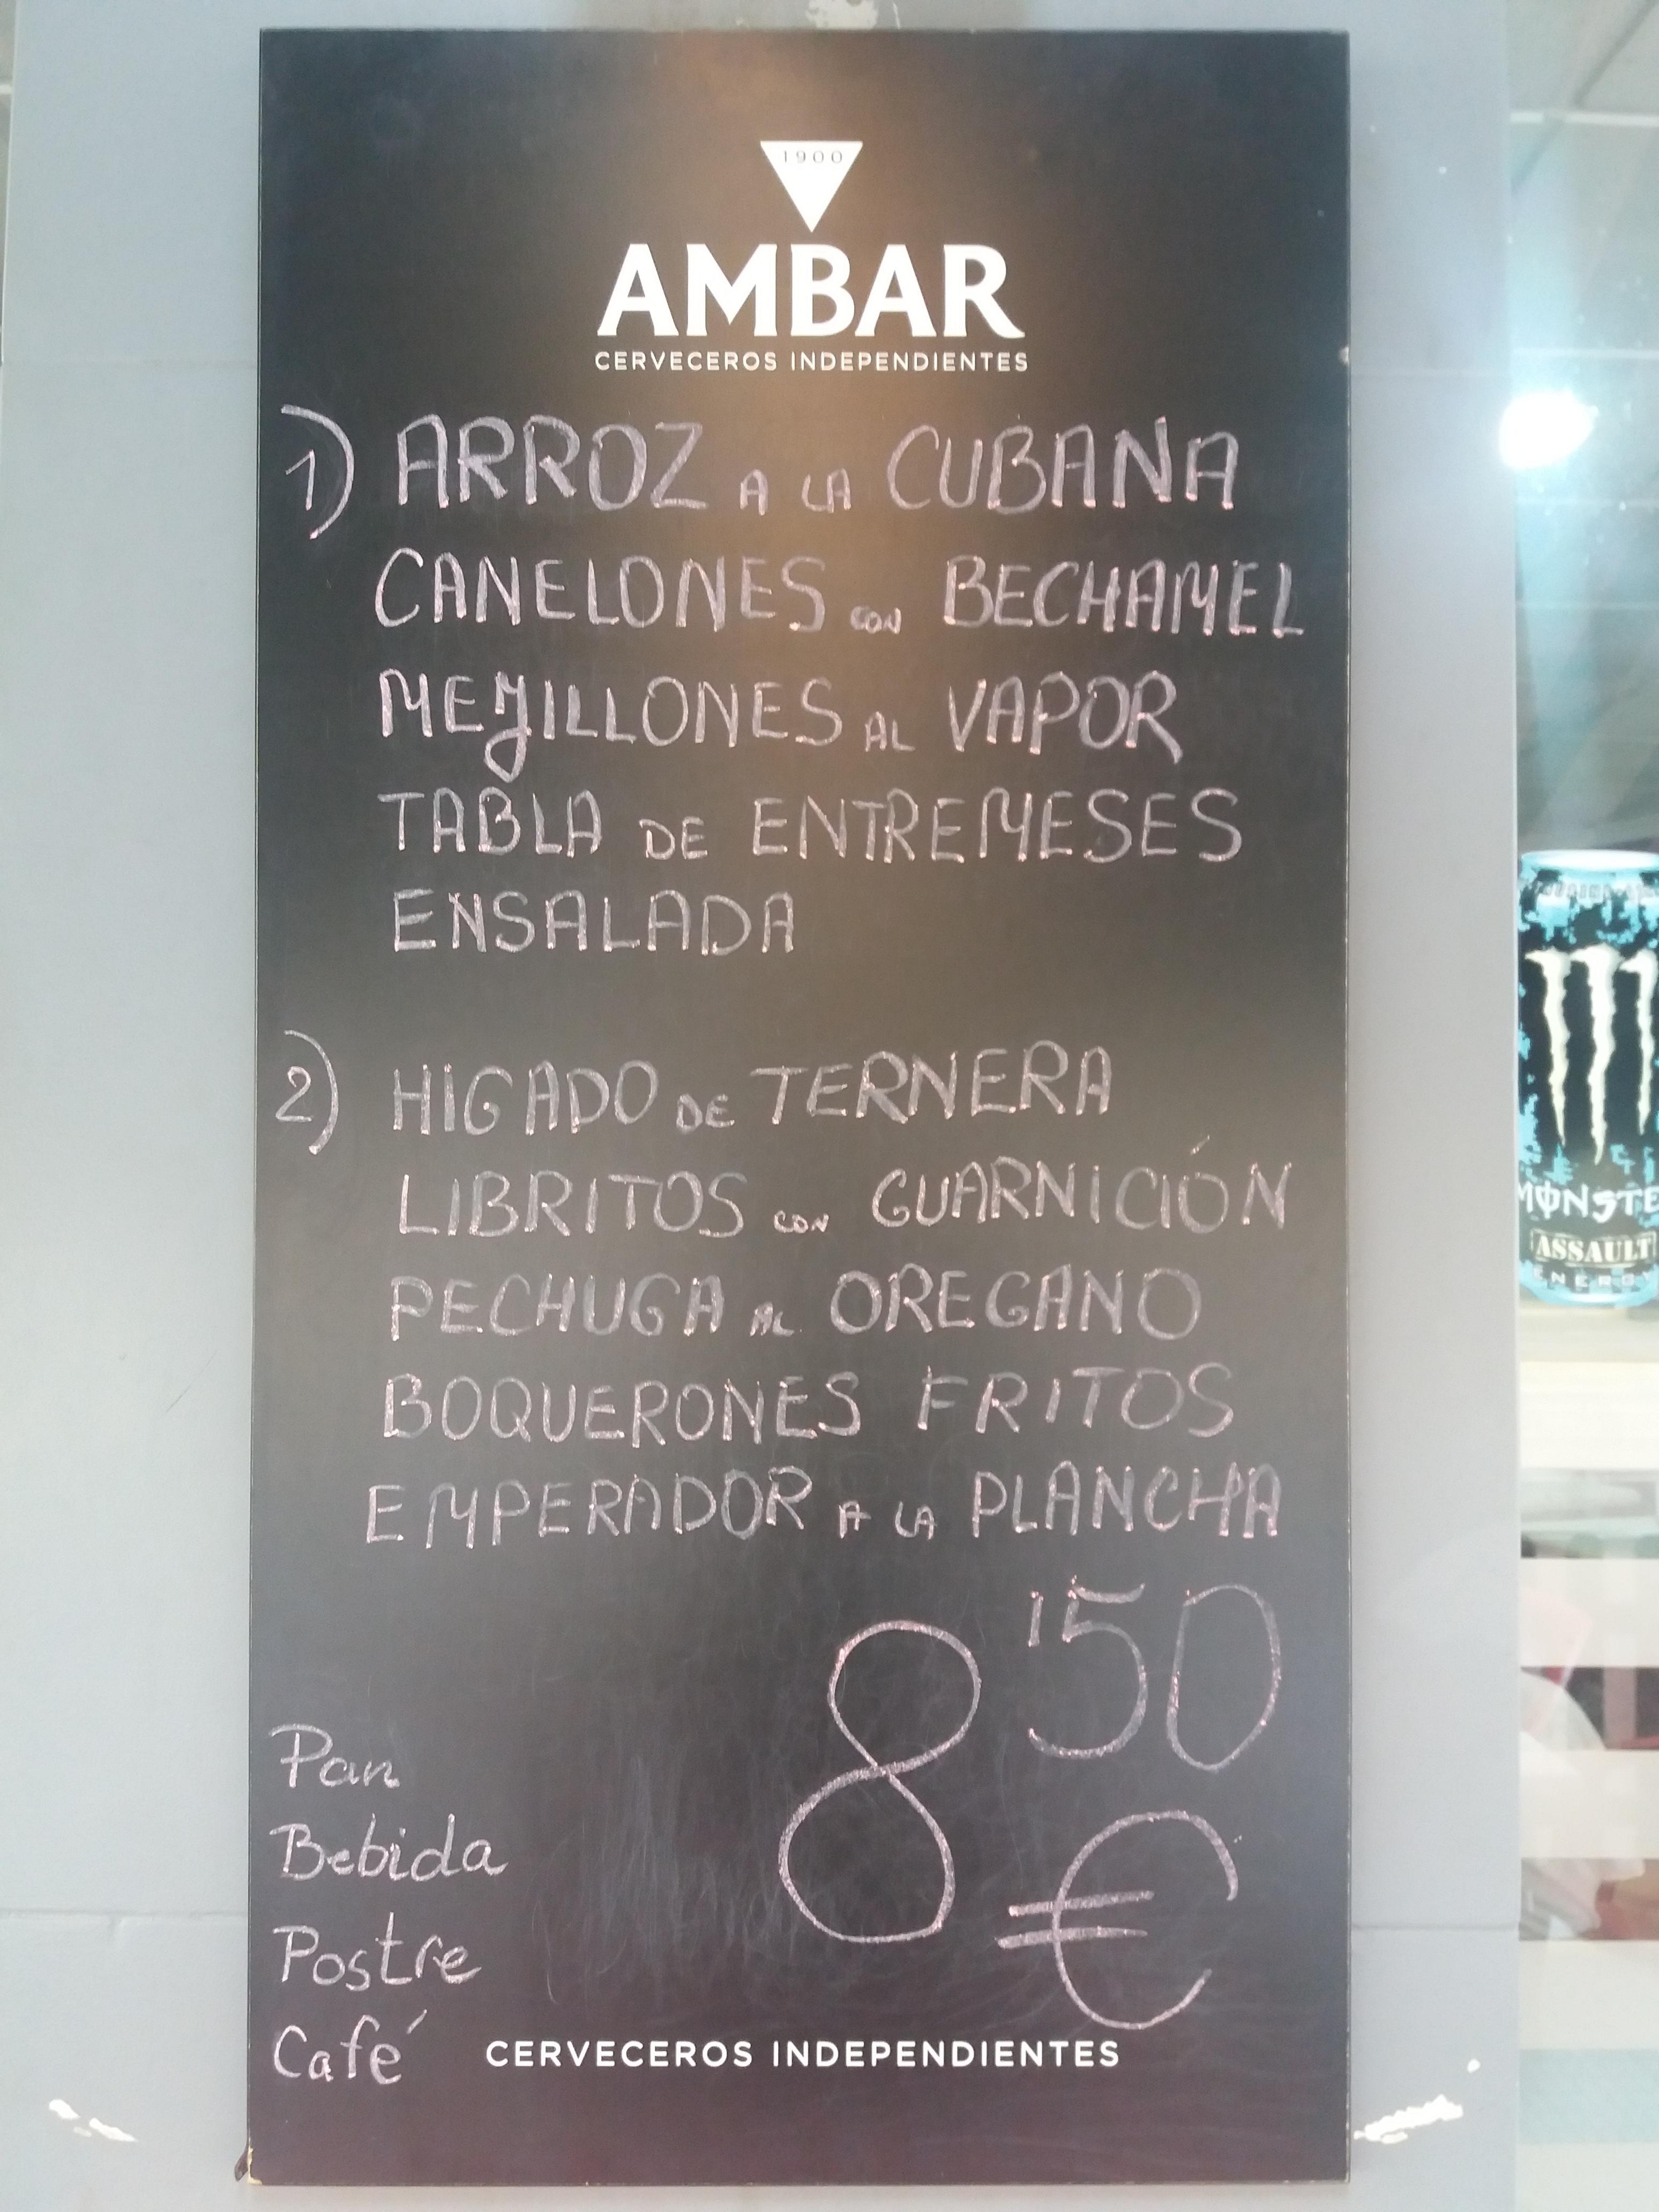 1900
AMBAR
CERVECEROS INDEPENDIENTES
1) ARROZ A LA CUBANA
CANELONES CON BECHAMEL
MEJILLONES AL VAPOR
TABLA DE ENTREMESES
ENSALADA
2) HIGADO DE TERNERA
LIBRITOS CON GUARNICIÓN
PECHUGA AL OREGANO
BOQUERONES FRITOS
EMPERADOR A LA PLANCHA
8'50 €
Pan
Bebida
Postre
Café
CERVECEROS INDEPENDIENTES
MONSTE
ASSAULT
ENERGY